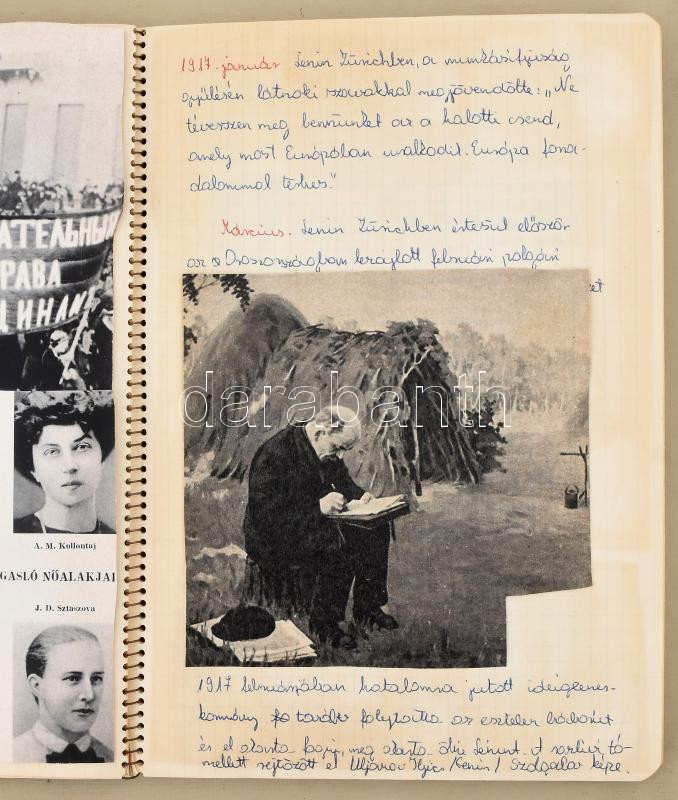 АТЕЛЬНЫ
РАВА
ЦИНАМ
A. M. Kollontaj
GASLÓ NŐALAKJAI
J. D. Sztaszova
1917. január Lenin Zürichben, a munkásifjúság
gyülésén látnoki szavakkal megjövendölte: „Ne
tévesszen meg bennünket az a halotti csend,
amely most Európában uralkodik. Európa forra-
dalommal terhes."
Március. Lenin Zürichben értesül először
az Oroszországban lezajlott februári polgári
et
darabanth
1917 februárjában hatalomra jutott ideiglenes-
kormány tovább folytatta az esztelen háborút
és el akarta fogni, meg akarta ölni Lenint. A
mellett rejtőzött el Uljanov Iljics /Lenin/ képe.